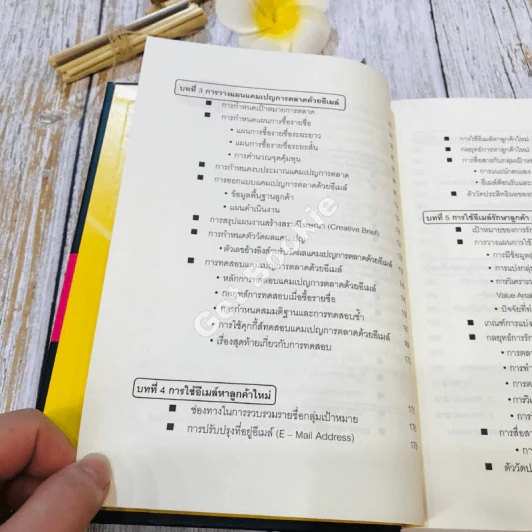 บทที่ 3 การวางแผนแคมเปญการตลาดด้วยอีเมล์
■ การกำหนดเป้าหมายการตลาด
■ การกำหนดแผนการซื้อรายชื่อ
• แผนการซื้อรายชื่อระยะยาว
• แผนการซื้อรายชื่อระยะสั้น
• การคำนวณจุดคุ้มทุน
■ การกำหนดงบประมาณแคมเปญการตลาด
■ การออกแบบแคมเปญการตลาดด้วยอีเมล์
• ข้อมูลพื้นฐานลูกค้า
• แผนดำเนินงาน
■ การสรุปแผนงานสร้างสรรค์โฆษณา (Creative Brief)
■ การกำหนดตัววัดผลแคมเปญ
• ตัวเลขอ้างอิงสำหรับวัดผลแคมเปญการตลาดด้วยอีเมล์
■ การทดสอบแคมเปญการตลาดด้วยอีเมล์
• หลักการทดสอบแคมเปญการตลาดด้วยอีเมล์
• กลยุทธ์การทดสอบเมื่อซื้อรายชื่อ
• การกำหนดสมมติฐานและการทดสอบซ้ำ
• การใช้คุกกี้ส์ทดสอบแคมเปญการตลาดด้วยอีเมล์
• เรื่องสุดท้ายเกี่ยวกับการทดสอบ
บทที่ 4 การใช้อีเมล์หาลูกค้าใหม่
■ ช่องทางในการรวบรวมรายชื่อกลุ่มเป้าหมาย 175
■ การปรับปรุงที่อยู่อีเมล์ (E – Mail Address)
■ การใช้อีเมล์หาลูกค้าใหม่
■ กลยุทธ์การหาลูกค้าใหม่
■ การสื่อสารกับกลุ่มเป้าห
• การแนะนำตนเอง
• อีเมล์ต้อนรับและ
■ ตัววัดประสิทธิผลของ
บทที่ 5 การใช้อีเมล์รักษาลูกค้า
■ เป้าหมายของการรัก
■ การวางแผนการใช้
• การมีข้อมูล
• การแบ่งกลุ่
• การวิเคราะ
Value Anal
• ปัจจัยที่ทำ
■ เกณฑ์การแบ่ง
■ กลยุทธ์การรัก
• การตล
• การทำ
• การวิเ
■ การสื่อสา
■ ตัววัดป
Got Bookie